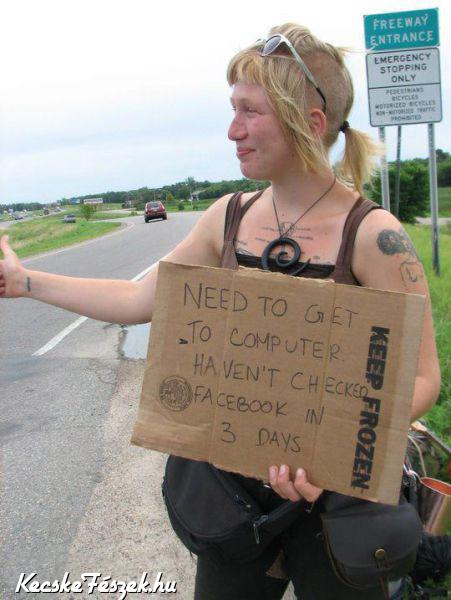 FREEWAY
ENTRANCE
EMERGENCY
STOPPING
ONLY
PEDESTRIANS
BICYCLES
MOTORIZED BICYCLES
NON-MOTORIZED TRAFFIC
PROHIBITED
NEED TO GET
TO COMPUTER.
HAVEN'T CHECKED
FACEBOOK IN
3 DAYS
KEEP FROZEN
KecskeFészek.hu